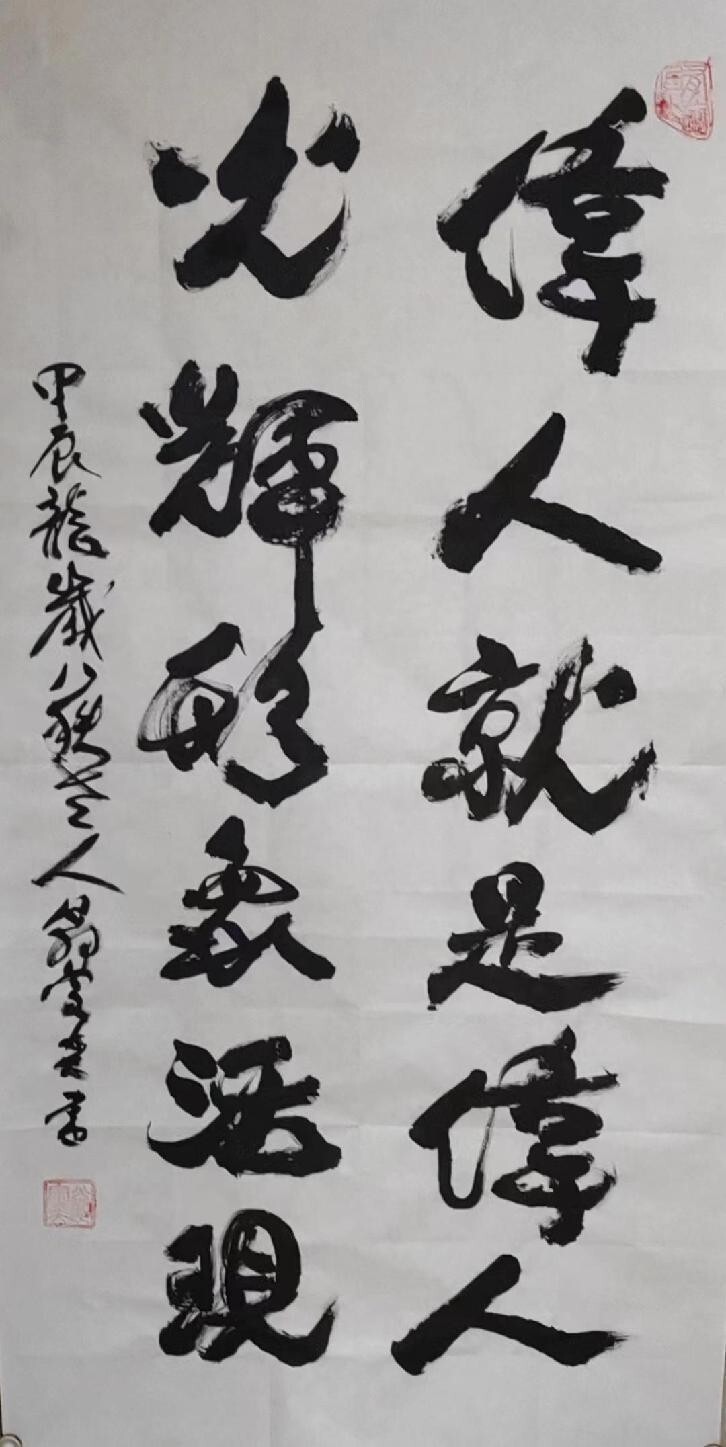 偉人就是偉人
光輝形象活現
甲辰龍歲八秩老人翁書